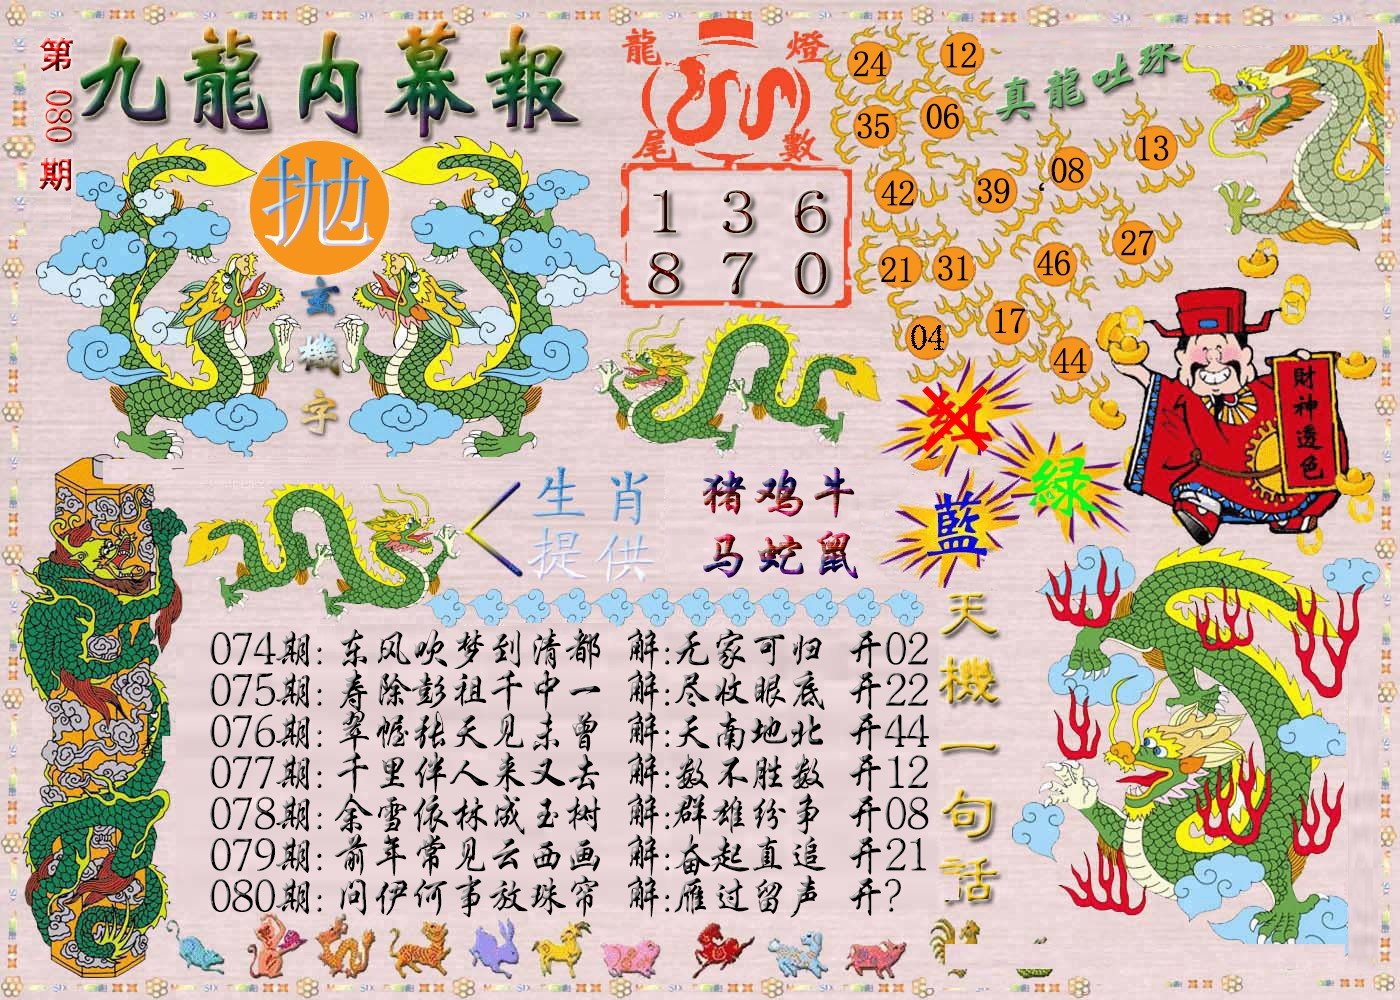 第080期
九龍内幕報
抛
玄機字
龍燈尾數
1 3 6
8 7 0
真龍吐珠
24 12
35 06
42 39 08 13
21 31 46 27
04 17 44
財神透色
紅
綠
藍
生肖提供
猪鸡牛
马蛇鼠
天機一句话
074期: 东风吹梦到清都 解:无家可归 开02
075期: 寿除彭祖千中一 解:尽收眼底 开22
076期: 翠幄张天见未曾 解:天南地北 开44
077期: 千里伴人来又去 解:数不胜数 开12
078期: 余雪依林成玉树 解:群雄纷争 开08
079期: 前年常见云西画 解:奋起直追 开21
080期: 问伊何事放珠帘 解:雁过留声 开?